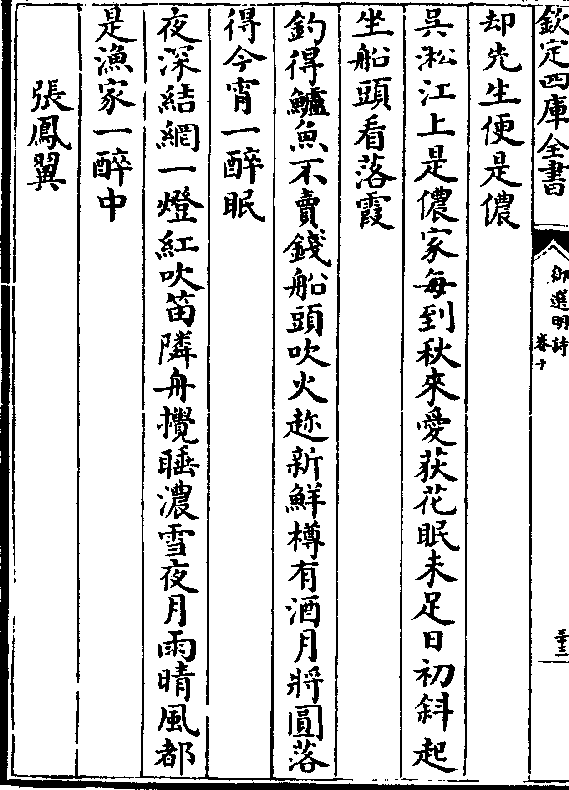 欽定四庫全書
御選明詩
卷十
三十二
却先生便是儂
吳淞江上是儂家每到秋來愛荻花眠未足日初斜起
坐船頭看落霞
釣得鱸魚不賣錢船頭吹火趂新鮮樽有酒月將圓落
得今宵一醉眠
夜深結網一燈紅吹笛隣舟攪睡濃雪夜月雨晴風都
是漁家一醉中
張鳳翼